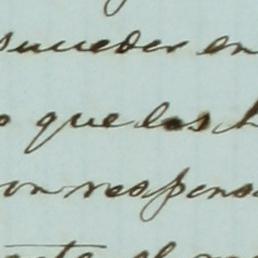 suceder en
que los h
on respons